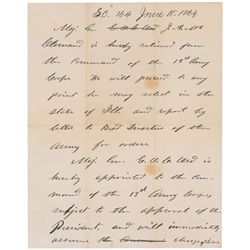 S.O. 164 June 18. 1863.
Maj. Gen. J. A. Mc
Clernand is hereby relieved from
the command of the 13th Army
Corps. He will proceed to any
point he may select in the
state of Ill. and report by
letter to Head Quarters of the
Army for orders.
Maj. Gen. E. O. C. Ord is
hereby appointed to the com-
mand of the 13th Army Corps,
subject to the approval of the
President, and will immediately
assume charge